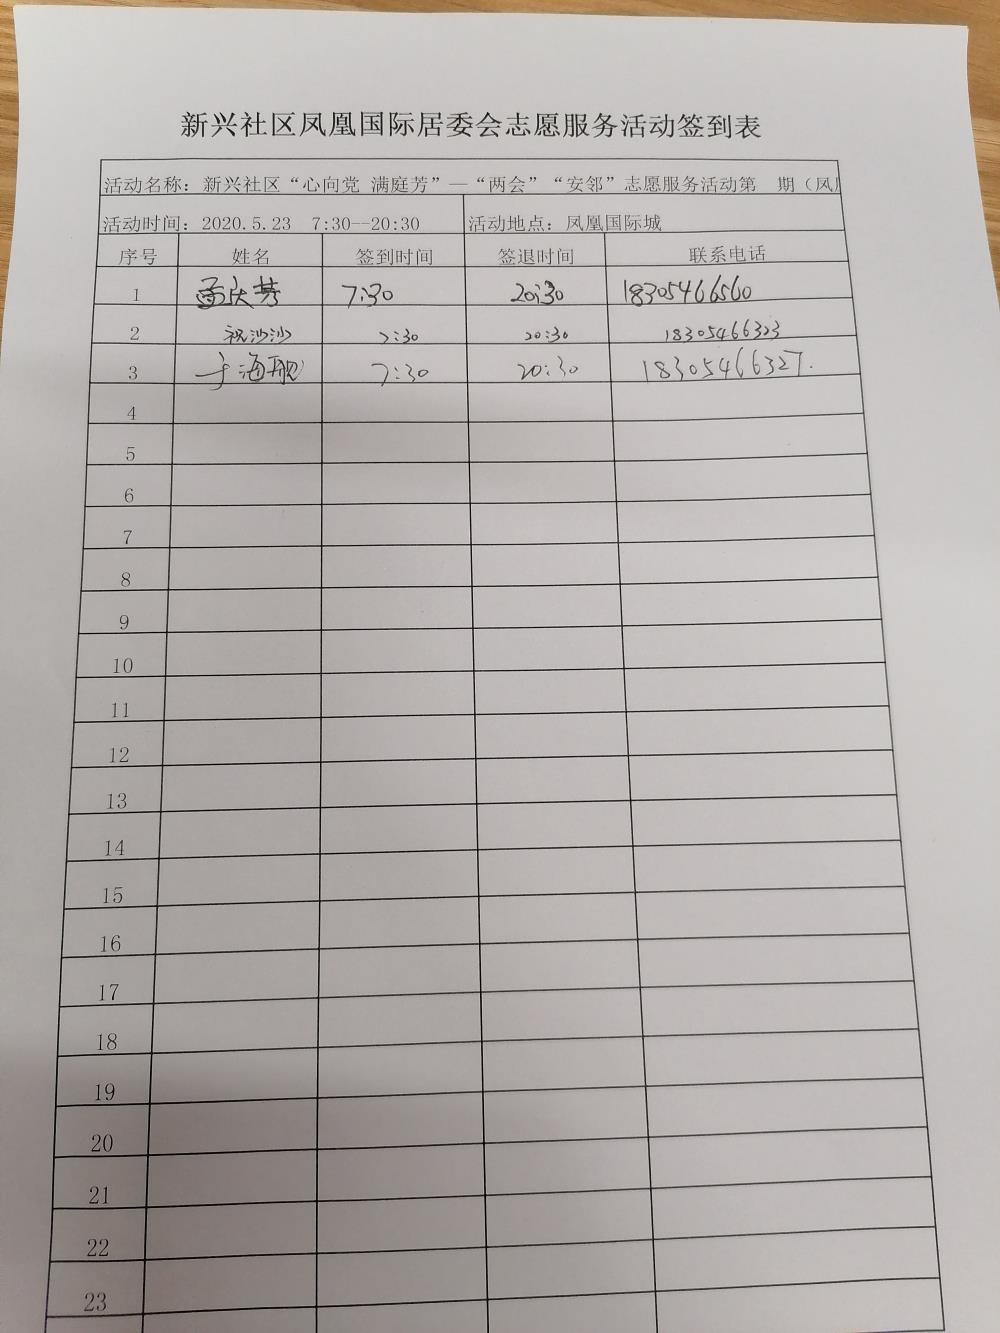 新兴社区凤凰国际居委会志愿服务活动签到表
活动名称：新兴社区“心向党 满庭芳”—“两会”“安邻”志愿服务活动第 期（凤
活动时间：2020.5.23 7:30--20:30 活动地点：凤凰国际城
序号 姓名 签到时间 签退时间 联系电话
1 孟庆芳 7:30 20:30 18305466560
2 祝沙沙 7:30 20:30 18305466323
3 于海舰 7:30 20:30 18305466327.
4
5
6
7
8
9
10
11
12
13
14
15
16
17
18
19
20
21
22
23